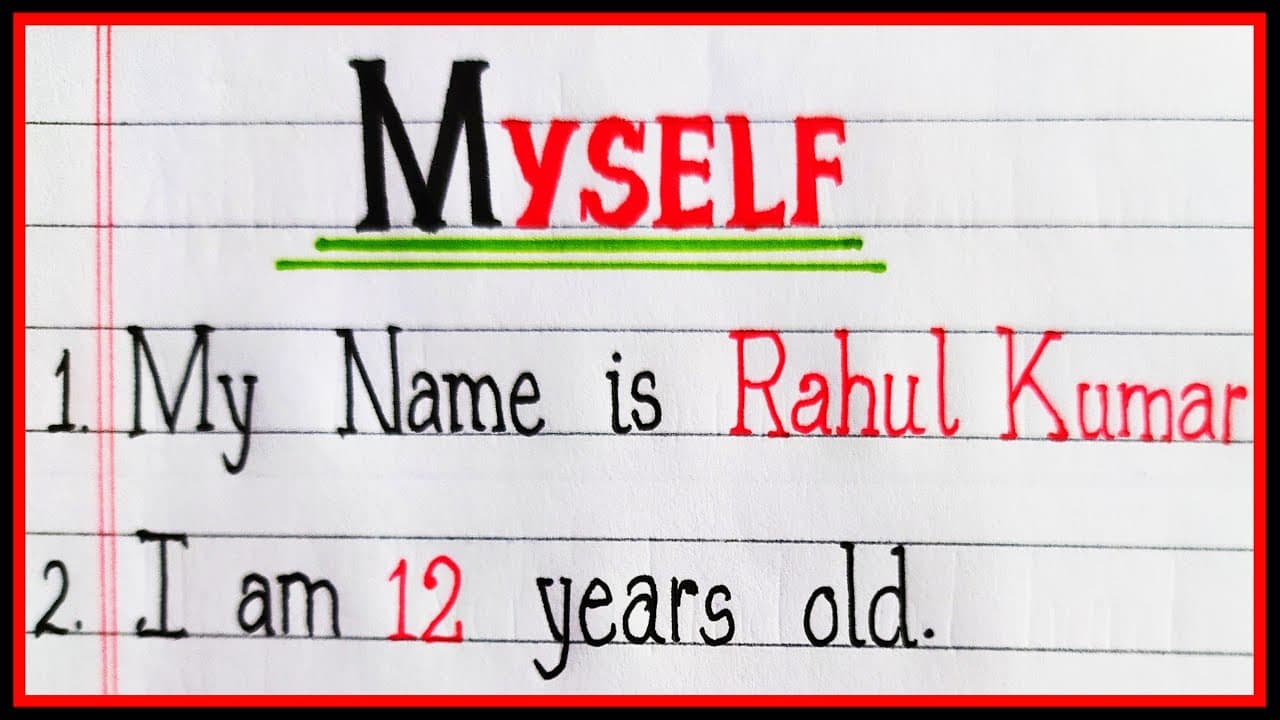 MYSELF
1. My Name is Rahul Kumar
2. I am 12 years old.